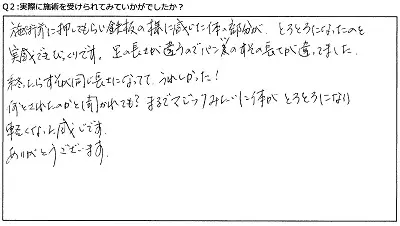 Q2:実際に施術を受けられてみていかがでしたか?
施術前に押してもらい鉄板の様に感じた体の部分が、とろとろになったのを
実感できてびっくりです。足の長さが違うのでパンツのすその長さが違ってました。
終ったらすそが同じ長さになってて、うれしかった!
何をされたのかと聞かれても?まるでマジックみたいに体がとろとろになり
軽くなった感じです。
ありがとうございます。